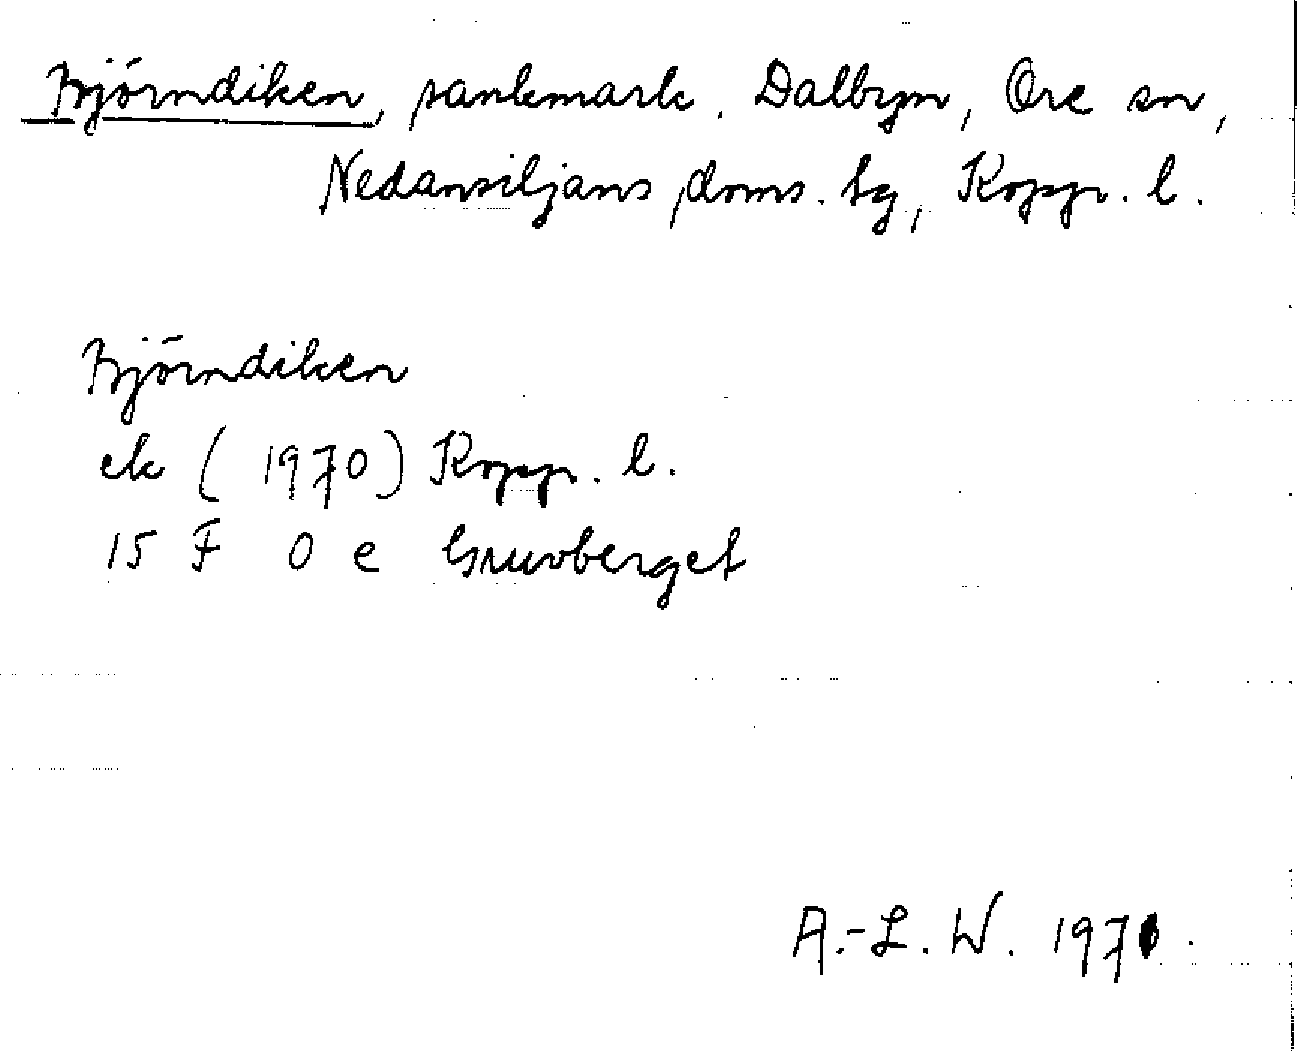 Björndiken, sankmark, Dalbyn, Ore sn,
Nedansiljans doms. tg, Kopp. l.
Björndiken
ek (1970) Kopp. l.
15 F 0 e Gruvberget
A.-L. W. 1971.